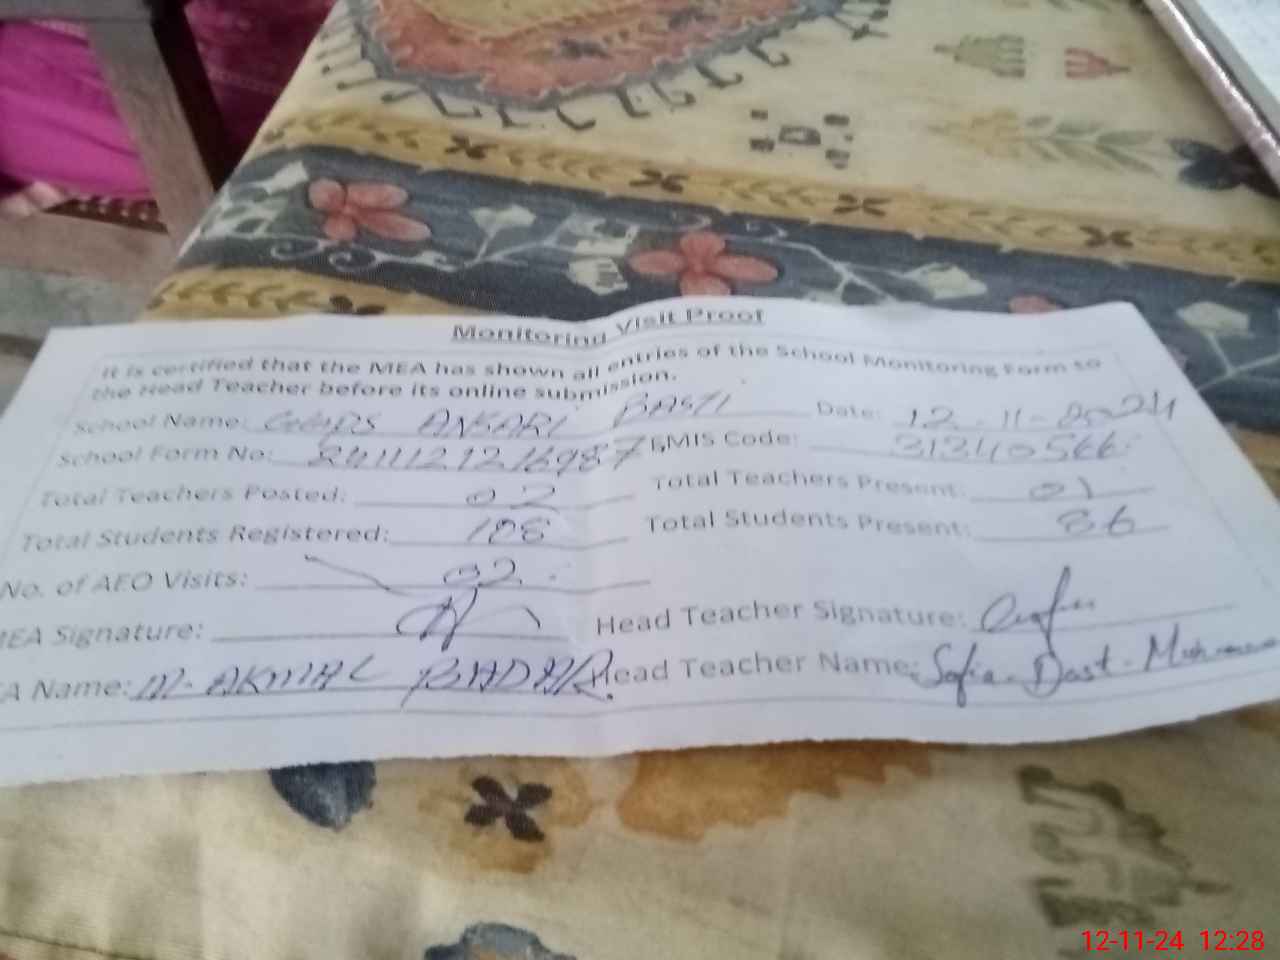 Monitoring Visit Proof
It is certified that the MEA has shown all entries of the School Monitoring Form to
the Head Teacher before its online submission.
School Name: GGPS ANSARI BASTI Date: 12-11-2024
School Form No: EMIS Code: 31340566
Total Teachers Posted: 02 Total Teachers Present: 01
Total Students Registered: 108 Total Students Present: 86
No. of AEO Visits: 02
MEA Signature: Head Teacher Signature:
A Name: M. AKMAL BADAR. Head Teacher Name: Sofia Dast
12-11-24 12:28